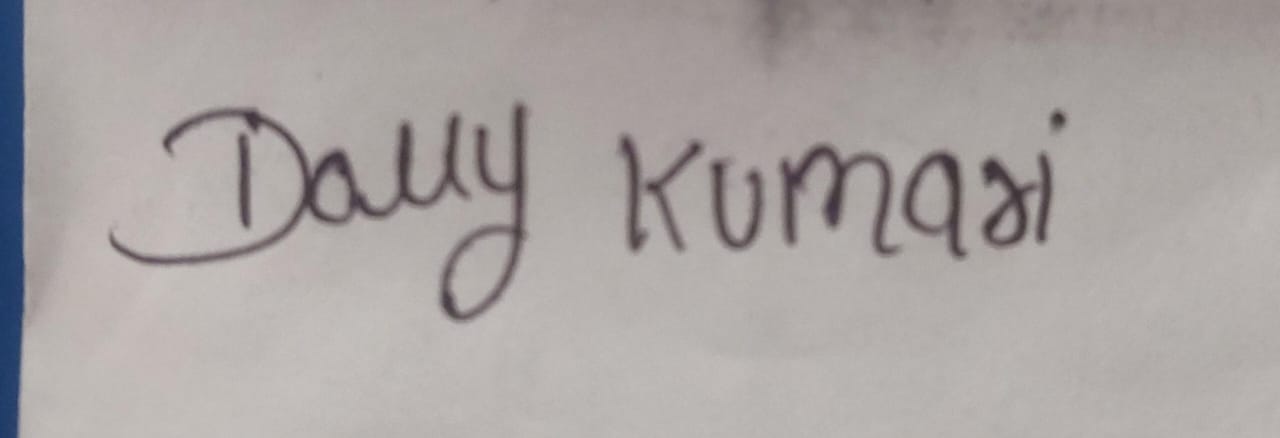 Dolly Kumari